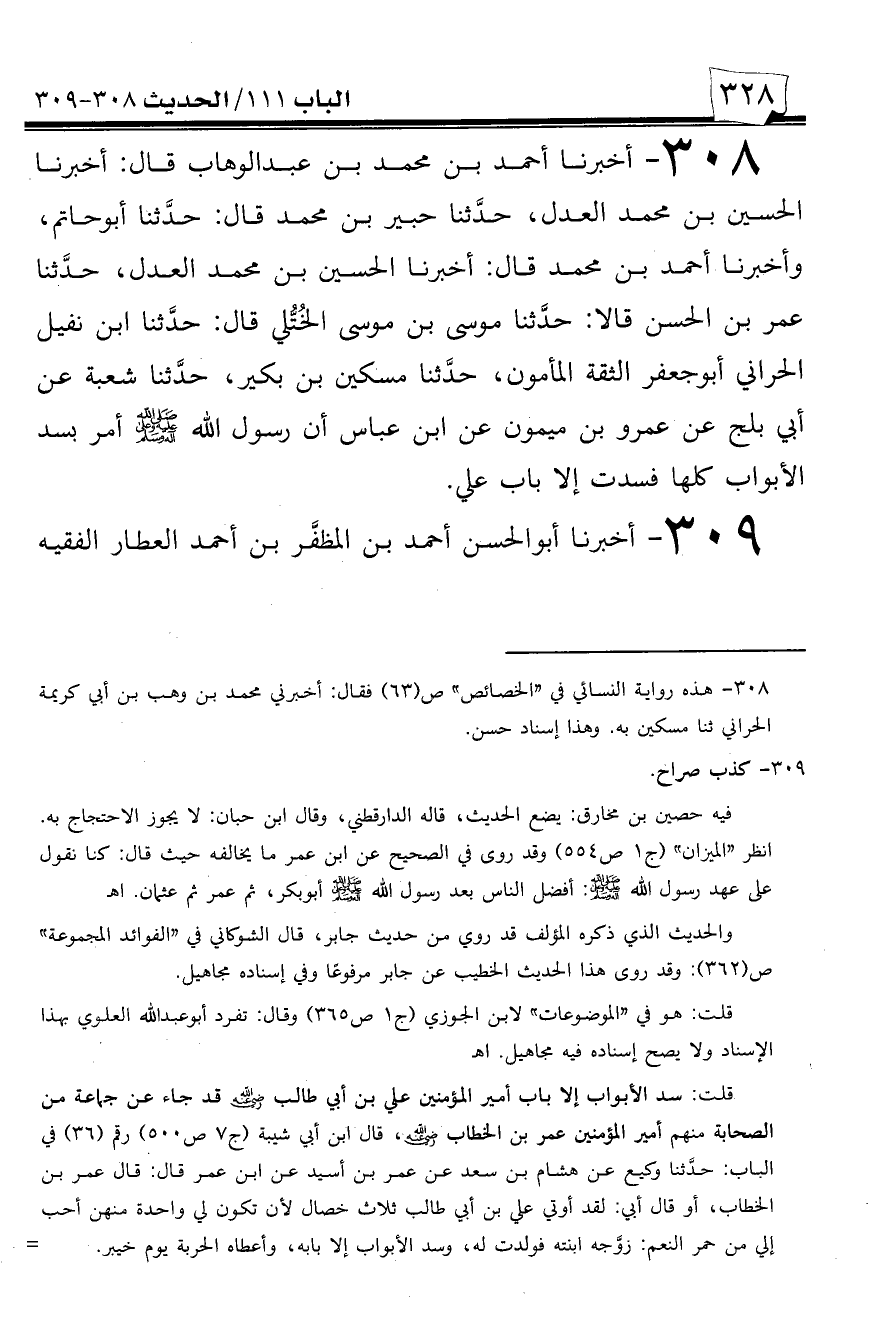 ٣٢٨
الباب ١١١/الحديث ٣٠٨-٣٠٩
٣٠٨- أخبرنا أحمد بن محمد بن عبدالوهاب قال: أخبرنا
الحسين بن محمد العدل، حدَّثنا حبير بن محمد قال: حدَّثنا أبوحاتم،
وأخبرنا أحمد بن محمد قال: أخبرنا الحسين بن محمد العدل، حدَّثنا
عمر بن الحسن قالا: حدَّثنا موسى بن موسى الخُتُّلي قال: حدَّثنا ابن نفيل
الحراني أبوجعفر الثقة المأمون، حدَّثنا مسكين بن بكير، حدَّثنا شعبة عن
أبي بلج عن عمرو بن ميمون عن ابن عباس أن رسول الله ﷺ أمر بسد
الأبواب كلها فسدت إلا باب علي.
٣٠٩- أخبرنا أبوالحسن أحمد بن المظفَّر بن أحمد العطار الفقيه
٣٠٨- هذه رواية النسائي في "الخصائص" ص(٦٣) فقال: أخبرني محمد بن وهب بن أبي كريمة
الحراني ثنا مسكين به. وهذا إسناد حسن.
٣٠٩- كذب صراح.
فيه حصين بن مخارق: يضع الحديث، قاله الدارقطني، وقال ابن حبان: لا يجوز الاحتجاج به.
انظر "الميزان" (ج١ ص٥٥٤) وقد روى في الصحيح عن ابن عمر ما يخالفه حيث قال: كنا نقول
على عهد رسول الله ﷺ: أفضل الناس بعد رسول الله ﷺ أبوبكر، ثم عمر ثم عثمان. اهـ
والحديث الذي ذكره المؤلف قد روي من حديث جابر، قال الشوكاني في "الفوائد المجموعة"
ص(٣٦٢): وقد روى هذا الحديث الخطيب عن جابر مرفوعًا وفي إسناده مجاهيل.
قلت: هو في "الموضوعات" لابن الجوزي (ج١ ص٣٦٥) وقال: تفرد أبوعبدالله العلوي بهذا
الإسناد ولا يصح إسناده فيه مجاهيل. اهـ
قلت: سد الأبواب إلا باب أمير المؤمنين علي بن أبي طالب رضي الله عنه قد جاء عن جماعة من
الصحابة منهم أمير المؤمنين عمر بن الخطاب رضي الله عنه، قال ابن أبي شيبة (ج٧ ص٥٠٠) رقم (٣٦) في
الباب: حدَّثنا وكيع عن هشام بن سعد عن عمر بن أسيد عن ابن عمر قال: قال عمر بن
الخطاب، أو قال أبي: لقد أوتي علي بن أبي طالب ثلاث خصال لأن تكون لي واحدة منهن أحب
إلي من حمر النعم: زوَّجه ابنته فولدت له، وسد الأبواب إلا بابه، وأعطاه الحربة يوم خيبر. =